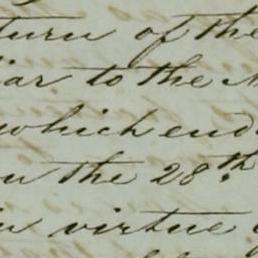 turn of the
iar to the
which end
the 28th
virtue